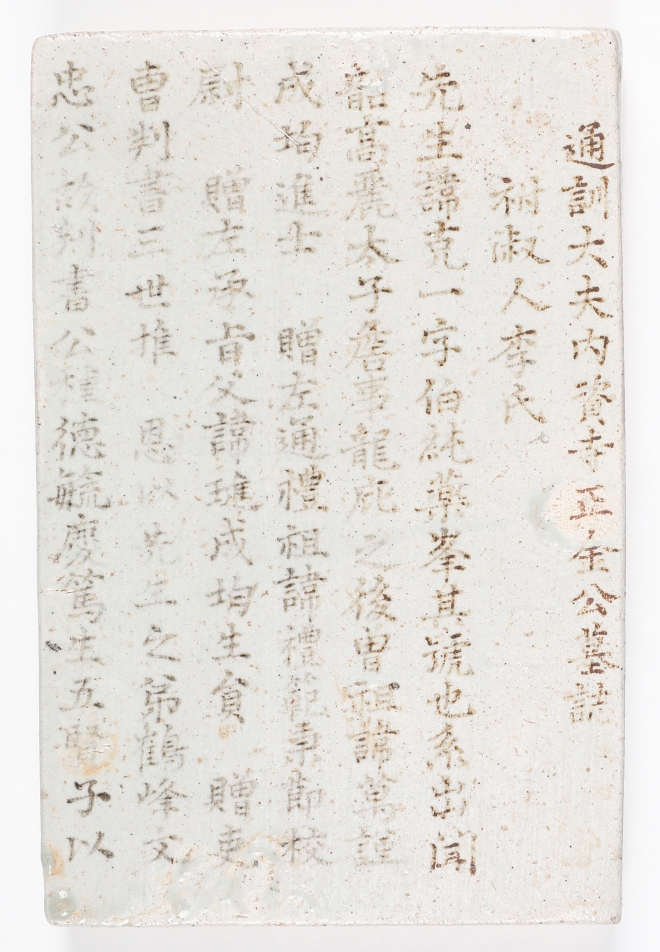 通訓大夫內資寺正金公墓誌
祔淑人李氏
先生諱克一字伯純藥峯其號也系出聞
韶高麗太子詹事龍庇之後曾祖諱萬謹
成均進士 贈左通禮祖諱禮範秉節校
尉 贈左承旨父諱璡成均生員 贈吏
曹判書三世推 恩以先生之弟鶴峰文
忠公故判書公種德毓慶篤生五賢子以